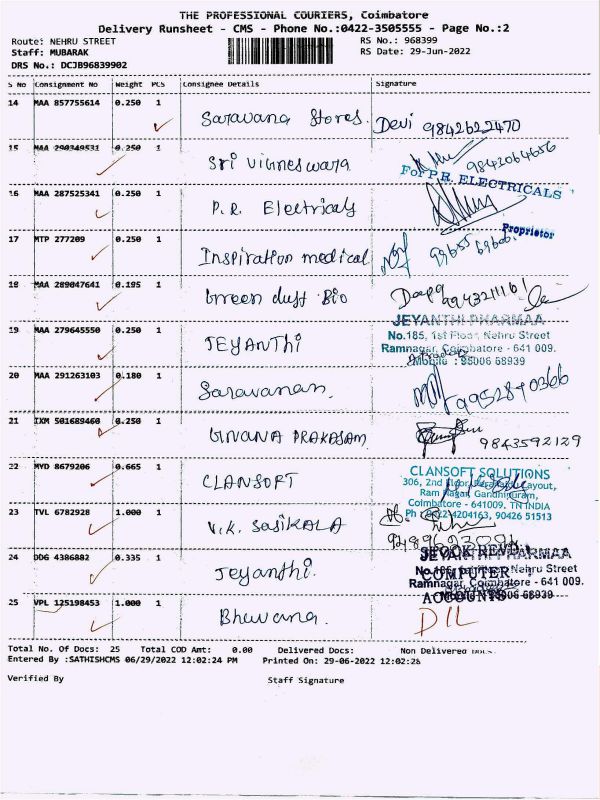 THE PROFESSIONAL COURIERS, Coimbatore
Delivery Runsheet - CMS - Phone No.:0422-3505555 - Page No.:2
Route: NEHRU STREET RS No.: 968399
Staff: MUBARAK RS Date: 29-Jun-2022
DRS No.: DCJB96839902
S No Consignment No Weight PCS Consignee Details Signature
14 MAA 857755614 0.250 1 Saravana Stores. Devi 9842622470
15 MAA 290349531 0.250 1 Sri Vigneswara 9842064656
For P.R. ELECTRICALS
16 MAA 287525341 0.250 1 P.R. Electricals
Proprietor
17 MTP 277209 0.250 1 Inspiration medical
18 MAA 289047641 0.195 1 Green dust Bio
JEYANTHI PHARMAA
19 MAA 279645550 0.250 1 JEYANTHi No.185, 1st Floor, Nehru Street
Ramnagar, Coimbatore - 641 009.
Mobile : 95006 68939
20 MAA 291263103 0.180 1 Saravanan. 9952840366
21 IXM 501689460 0.250 1 GNANA PRAKASAM 9843592129
22 MYD 8679206 0.665 1 CLANSOFT CLANSOFT SOLUTIONS
306, 2nd Floor, Layout,
Ram Nagar, Gandhipuram,
Coimbatore - 641009, TN INDIA
Ph : 0422 4204163, 90426 51513
23 TVL 6782928 1.000 1 V.K. SASIKALA
STOCK REVD.
JEYANTHI PHARMAA
24 DDG 4386882 0.335 1 Jeyanthi. No.185, 1st Floor, Nehru Street
COMPUTER
Ramnagar, Coimbatore - 641 009.
ACCOUNTS
Mobile : 95006 68939
25 VPL 125198453 1.000 1 Bhuvana. DIL
Total No. Of Docs: 25 Total COD Amt: 0.00 Delivered Docs: Non Delivered Docs.
Entered By :SATHISHCMS 06/29/2022 12:02:24 PM Printed On: 29-06-2022 12:02:26
Verified By Staff Signature